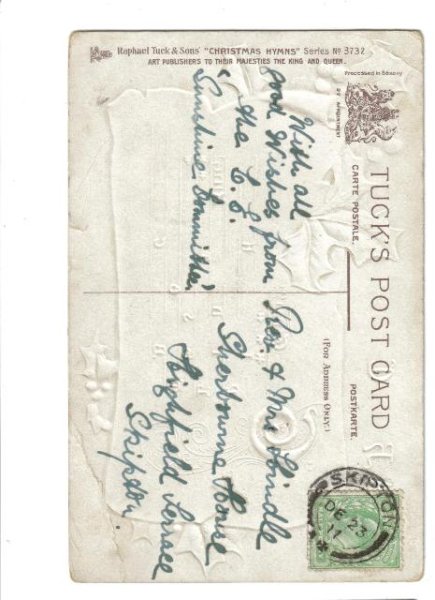 Raphael Tuck & Sons' "CHRISTMAS HYMNS" Series Nº 3732
ART PUBLISHERS TO THEIR MAJESTIES THE KING AND QUEEN.
Processed in Saxony
BY APPOINTMENT
TUCK'S POST CARD
CARTE POSTALE.
POSTKARTE.
(FOR ADDRESS ONLY.)
With all
good Wishes from
the C. E.
Sunshine Committee
Rev. & Mrs
Sherbourne House
Highfield Terrace
Skipton.
SKIPTON
DE 23
11